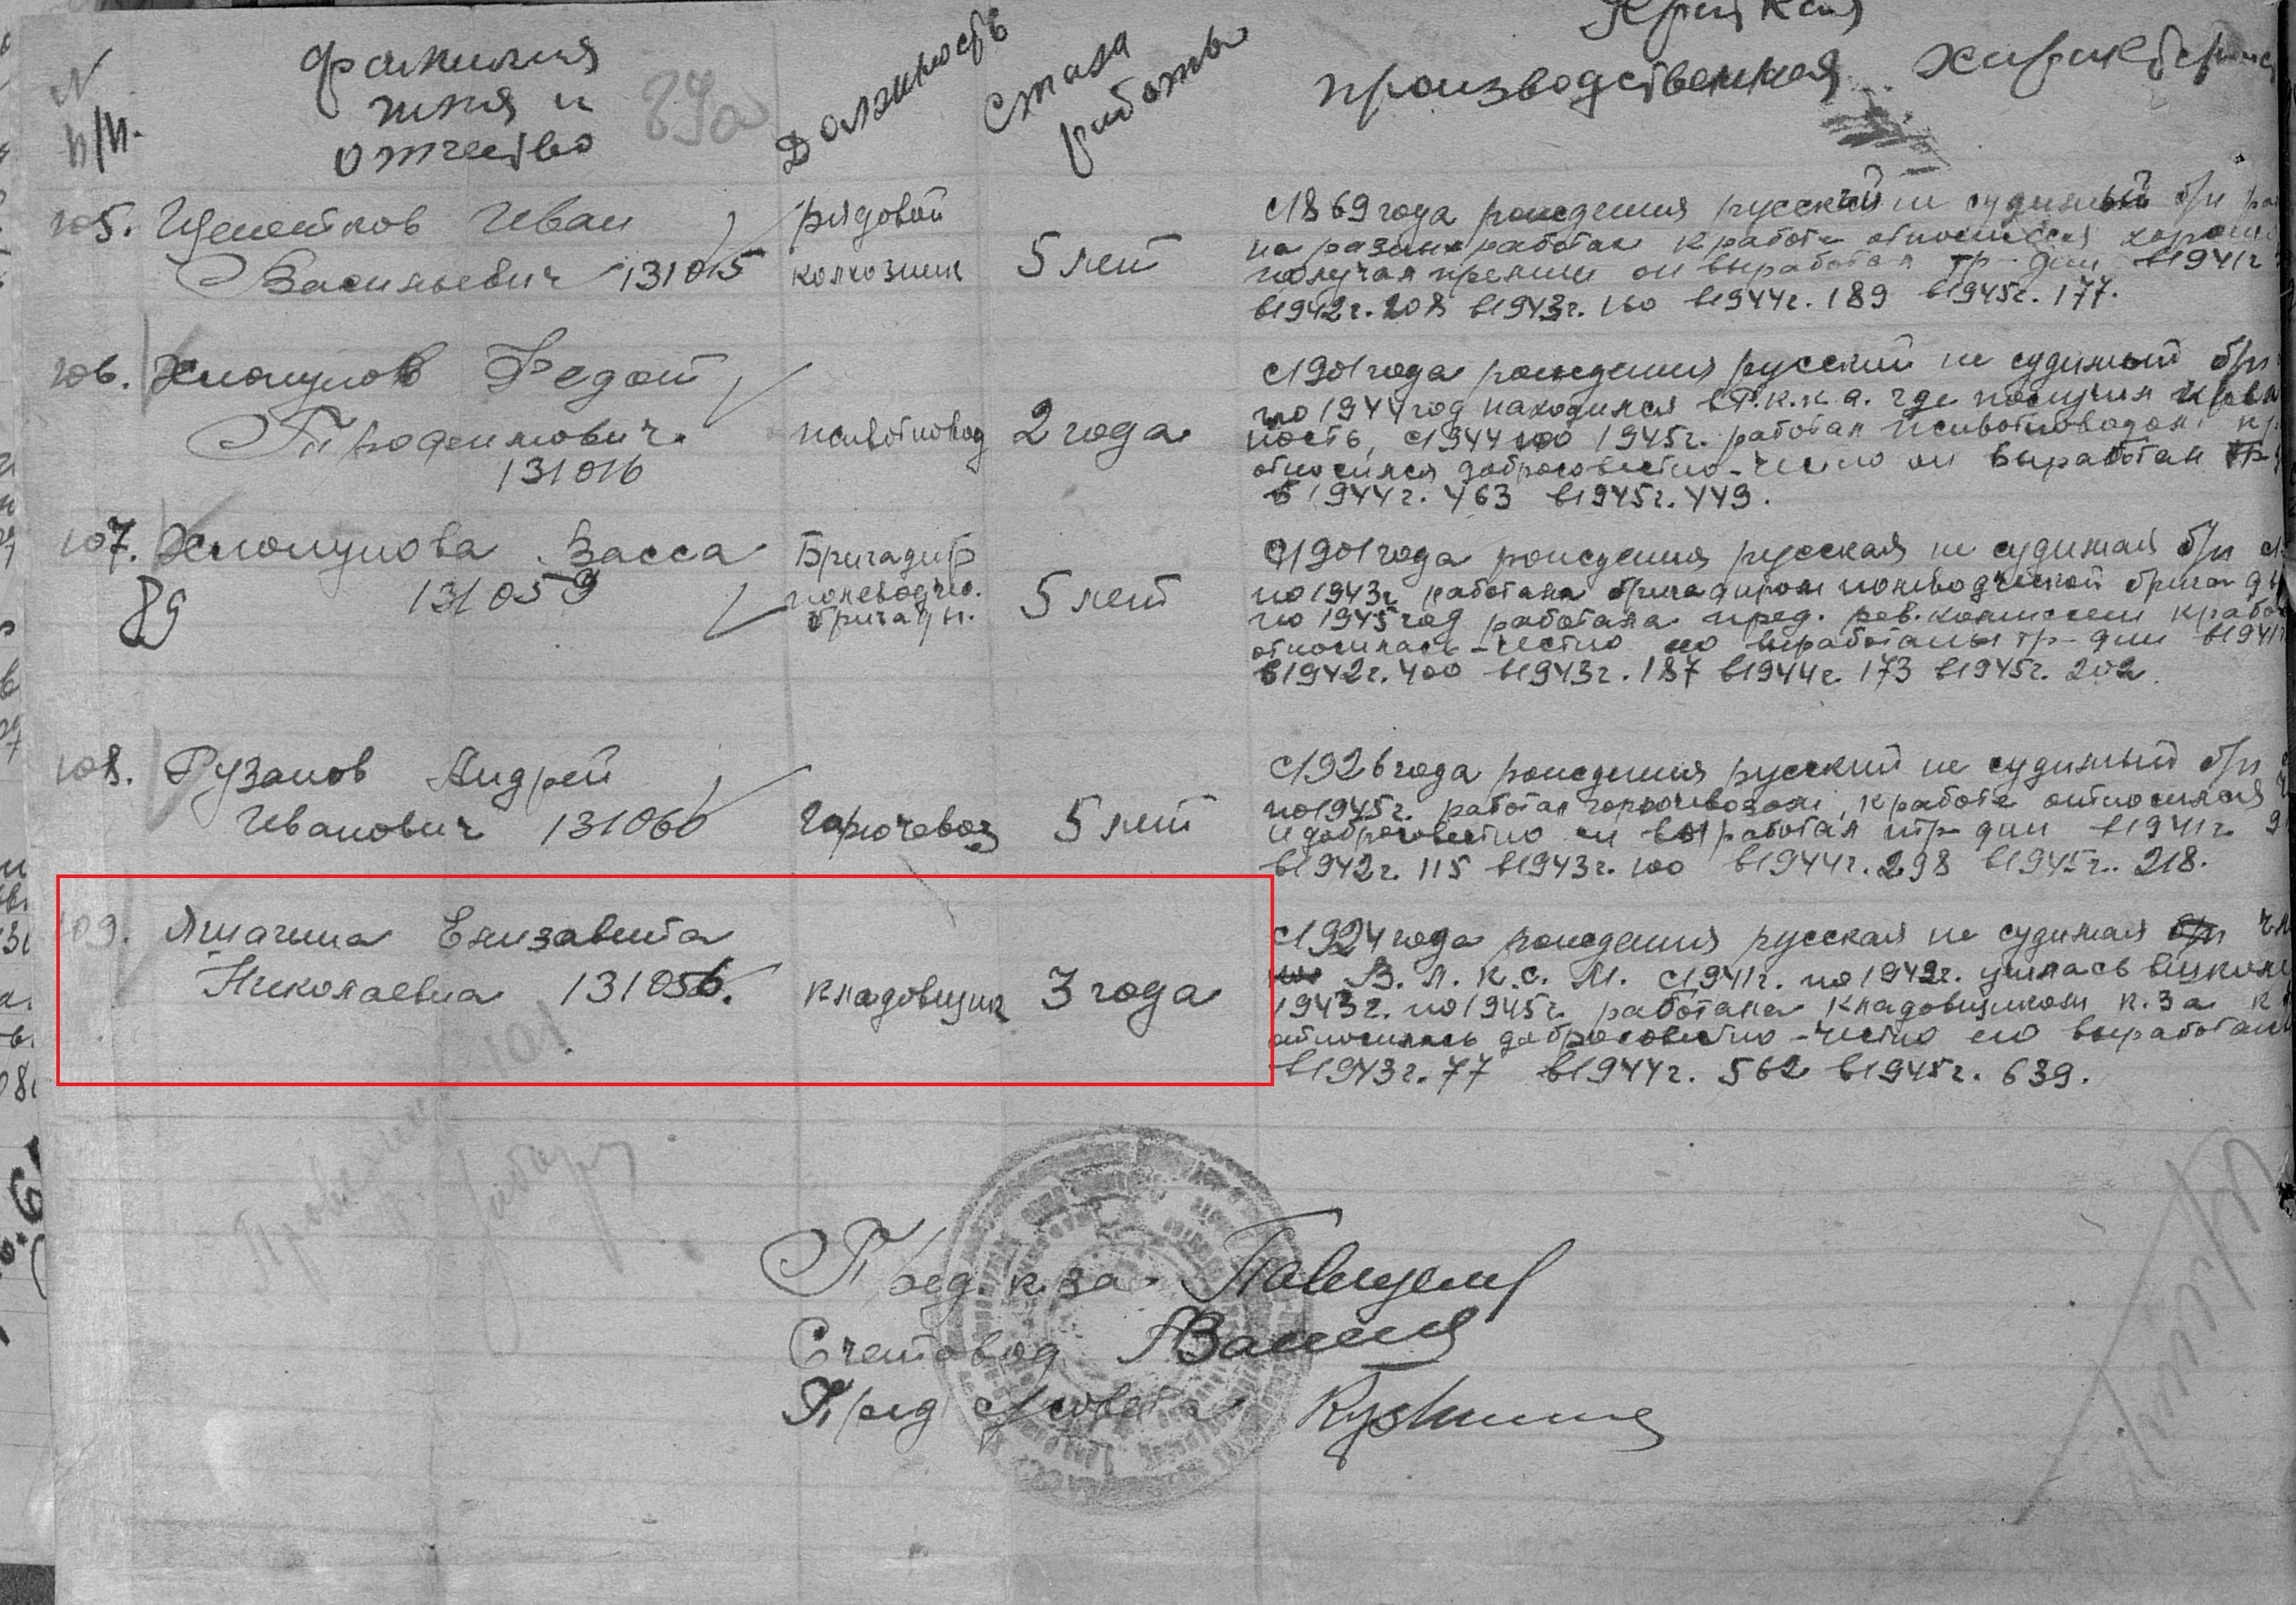 N п/п.
фамилия имя и отчество
89а
Должность
стаж работы
Краткая
производственная характерис
105. Щелотков Иван
Васильевич 131015
рядовой
колхозник
5 лет
с 1869 года рождения русский не судимый б/п
на разных работах к работе относился хорошо
получал премии он выработал тр-дни в 1941г
в 1942г. 208 в 1943г. 160 в 1944г. 189 в 1945г. 177.
106. Хлопунов Федот
Трофимович
131016
животновод
2 года
с 1901 года рождения русский не судимый б/п
по 1944 год находился в Р.К.К.А. где получил
ность, с 1944 по 1945г. работал животноводом к
относился добросовестно-честно он выработал тр-
в 1944г. 463 в 1945г. 449.
107. Хлопунова Васса
131059
89
Бригадир
полеводчес.
бригады.
5 лет
с 1901 года рождения русская не судимая б/п с
по 1943г работала бригадиром полеводческой бригады
по 1945 год работала пред. рев. комиссии к работе
относилась-честно ею выработаны тр-дни в 1941г
в 1942г. 400 в 1943г. 187 в 1944г. 173 в 1945г. 202.
108. Рузанов Андрей
Иванович 131060
горючевоз
5 лет
с 1926 года рождения русский не судимый б/п
по 1945г. работал горючевозом, к работе относился
и добросовестно он выработал тр-дни в 1941г 9
в 1942г. 115 в 1943г. 100 в 1944г. 298 в 1945г. 218.
109. Ямагина Елизавета
Николаевна 131056.
кладовщик
3 года
с 1924 года рождения русская не судимая б/п чл
В.Л.К.С.М. с 1941г. по 1942г. училась в школе
1943г. по 1945г. работала кладовщиком к.за к
относилась добросовестно-честно ею выработано
в 1943г. 77 в 1944г. 562 в 1945г. 639.
Пред. к.за
Счетовод
Пред с/совета